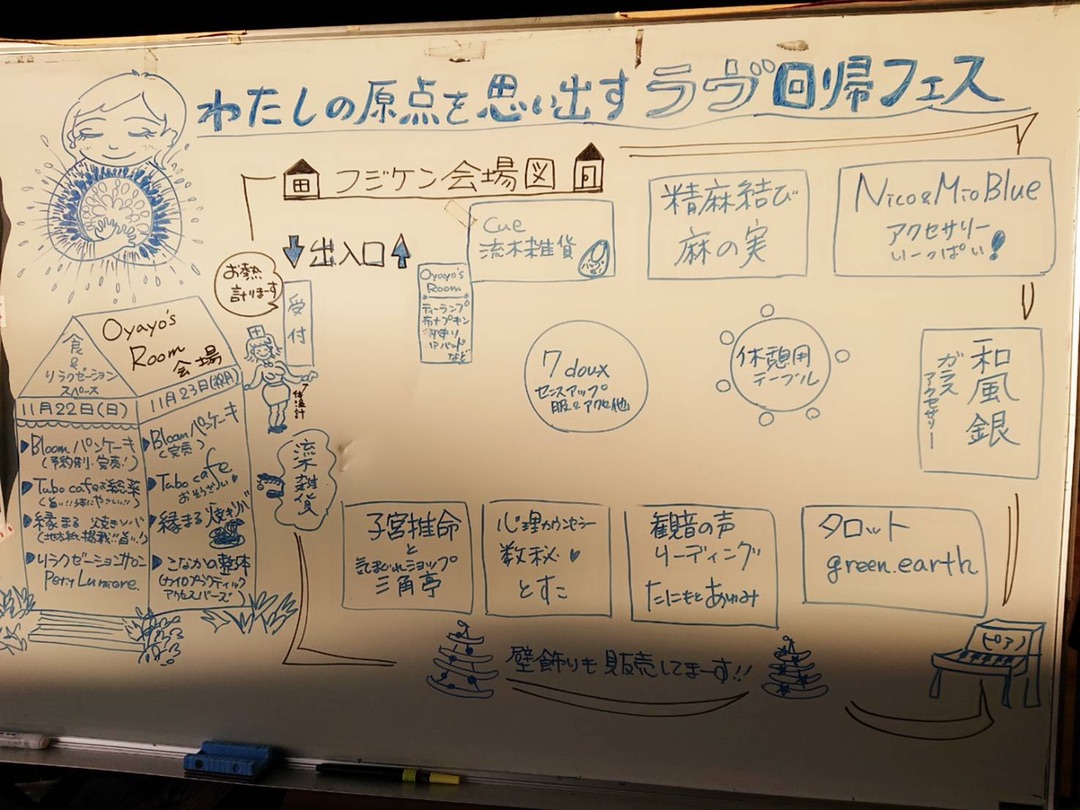 わたしの原点を思い出すラヴ回帰フェス
フジケン会場図
出入口
お熱
計りまーす
受付
体温計
Oyayo's
Room
ティーランプ
布ナプキン
など
Cue
流木雑貨
精麻結び
麻の実
Nico&MioBlue
アクセサリー
いーっぱい!
7doux
センスアップ
服&アクセ他
休憩用
テーブル
和風銀
ガラス
アクセサリー
Oyayo's
Room
会場
食&
リラクゼーション
スペース
11月22日(日)
Bloomパンケーキ
(予約制・完売!)
Tabo cafeお総菜
縁まる 焼きいも
リラクゼーションサロン
Petit Lumiere.
11月23日(祝月)
Bloomパンケーキ
(完売)
Tabo cafe
おそうざい
縁まる
こなかの整体
(カイロプラクティック
アクセスバーズ)
流木雑貨
子宮推命
と
気まぐれショップ
三角亭
心理カウンセラー
数秘♥
とすこ
観音の声
リーディング
たにもとあゆみ
タロット
green.earth
壁飾りも販売してまーす!!
ピアノ